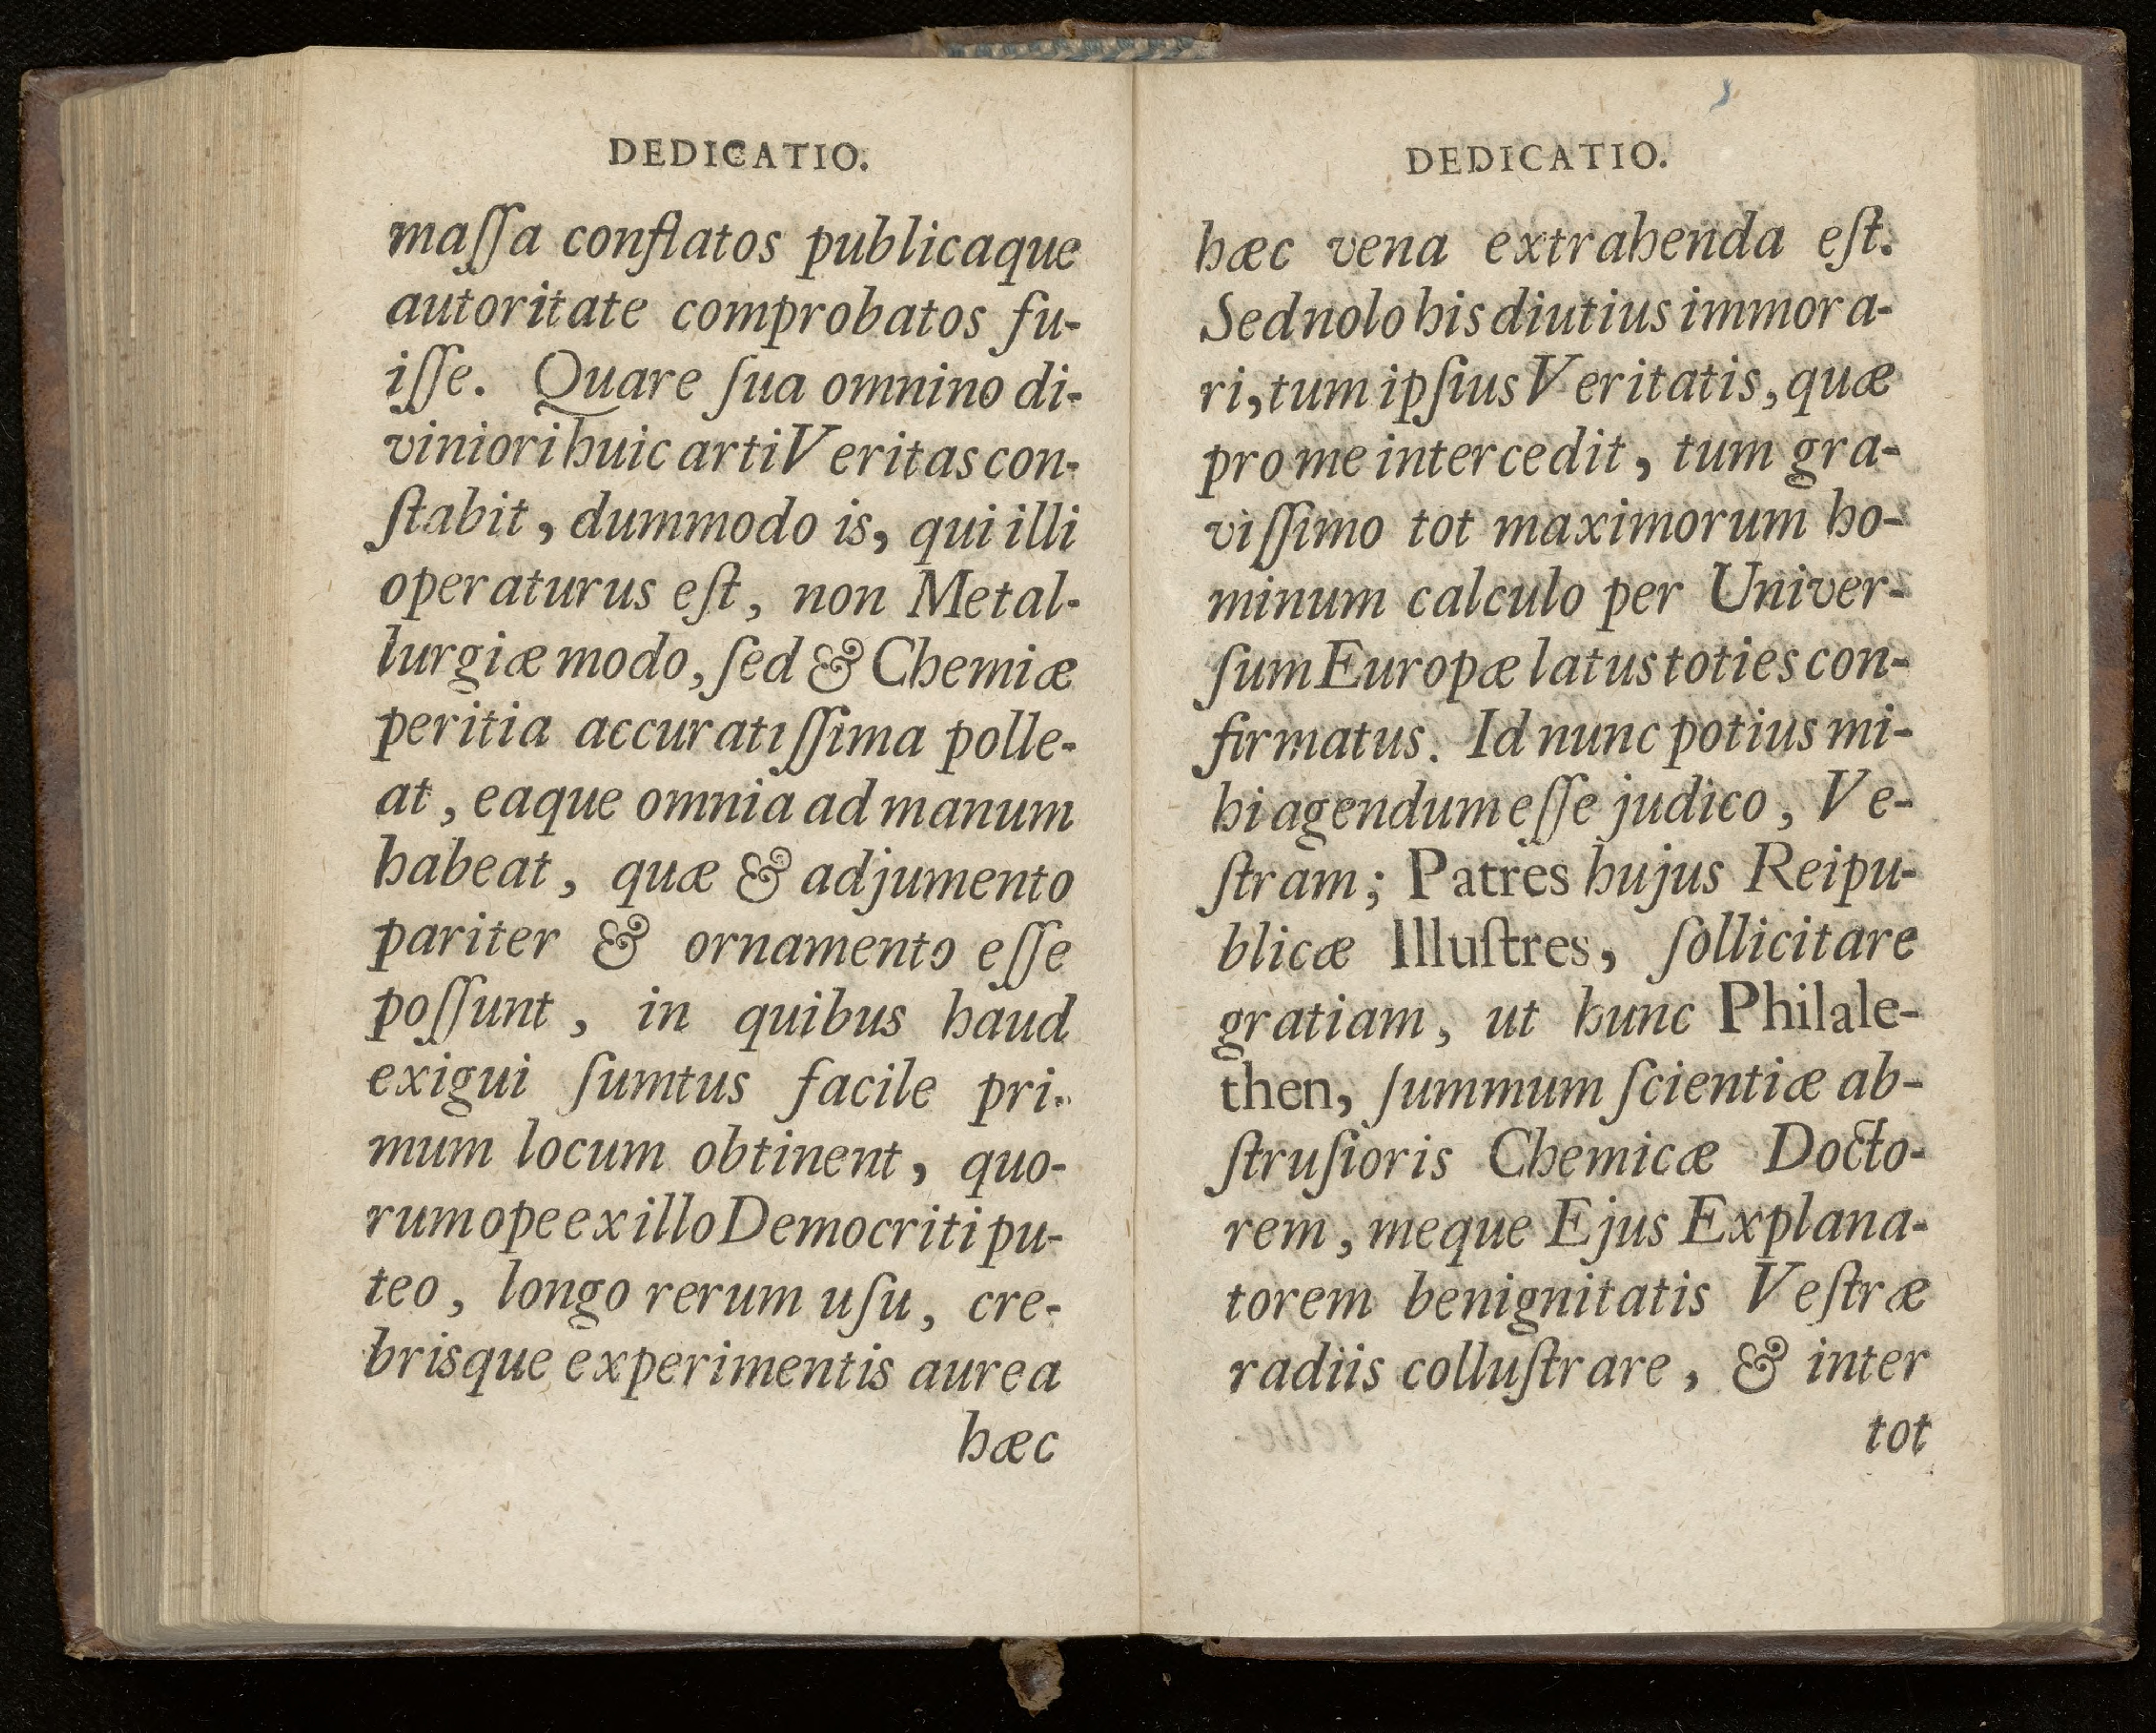 DEDICATIO.
maſſa conflatos publicaque
autoritate comprobatos fu-
iſſe. Quare ſua omnino di-
viniori huic arti Veritas con-
ſtabit, dummodo is, qui illi
operaturus eſt, non Metal-
lurgiæ modo, ſed & Chemiæ
peritia accuratiſſima polle-
at, eaque omnia ad manum
habeat, quæ & adjumento
pariter & ornamento eſſe
poſſunt, in quibus haud
exigui ſumtus facile pri-
mum locum obtinent, quo-
rum ope ex illo Democriti pu-
teo, longo rerum uſu, cre-
brisque experimentis aurea
hæc
DEDICATIO.
hæc vena extrahenda eſt.
Sed nolo his diutius immora-
ri, tum ipſius Veritatis, quæ
pro me intercedit, tum gra-
viſſimo tot maximorum ho-
minum calculo per Univer-
ſum Europæ latus toties con-
firmatus. Id nunc potius mi-
hi agendum eſſe judico, Ve-
ſtram; Patres hujus Reipu-
blicæ Illuſtres, ſollicitare
gratiam, ut hunc Philale-
then, ſummum ſcientiæ ab-
ſtruſioris Chemicæ Docto-
rem, meque Ejus Explana-
torem benignitatis Veſtræ
radiis colluſtrare, & inter
tot